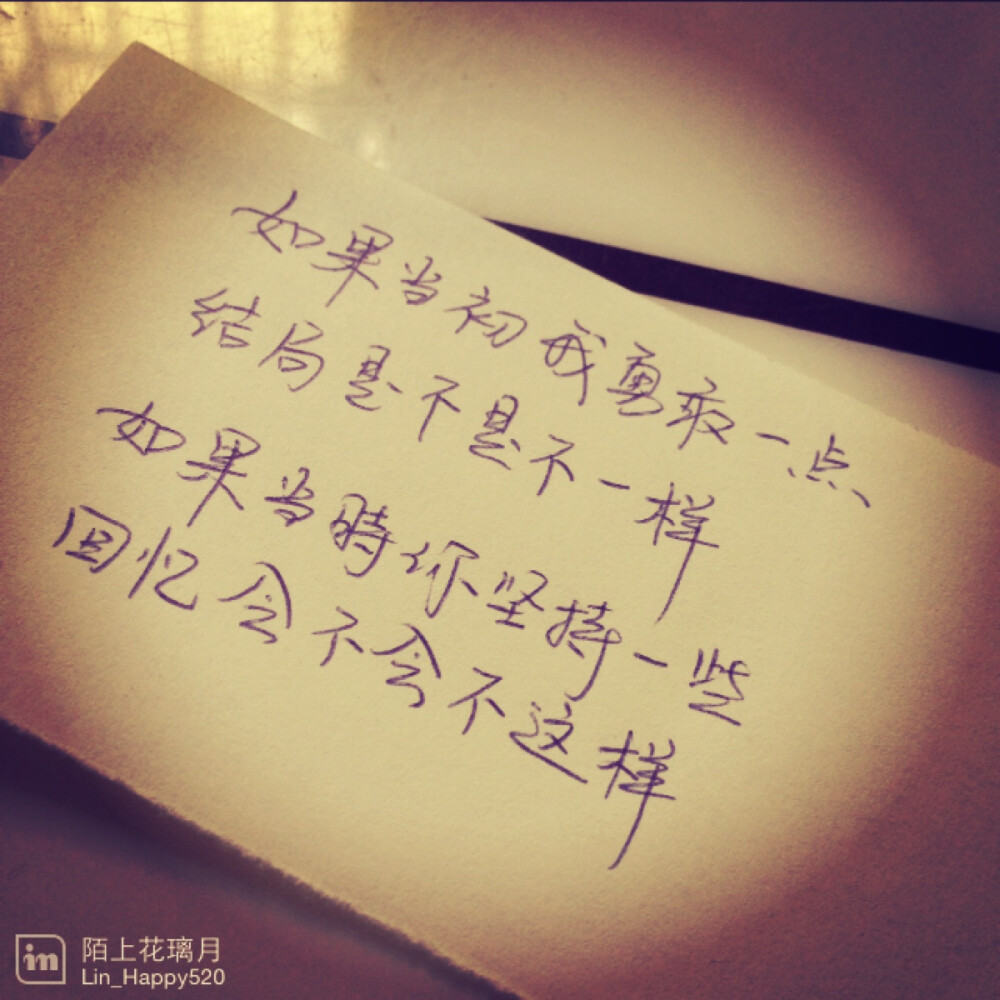 如果当初我勇敢一点、
结局是不是不一样
如果当時你坚持一些
回忆会不会不这样
im 陌上花璃月
Lin_Happy520